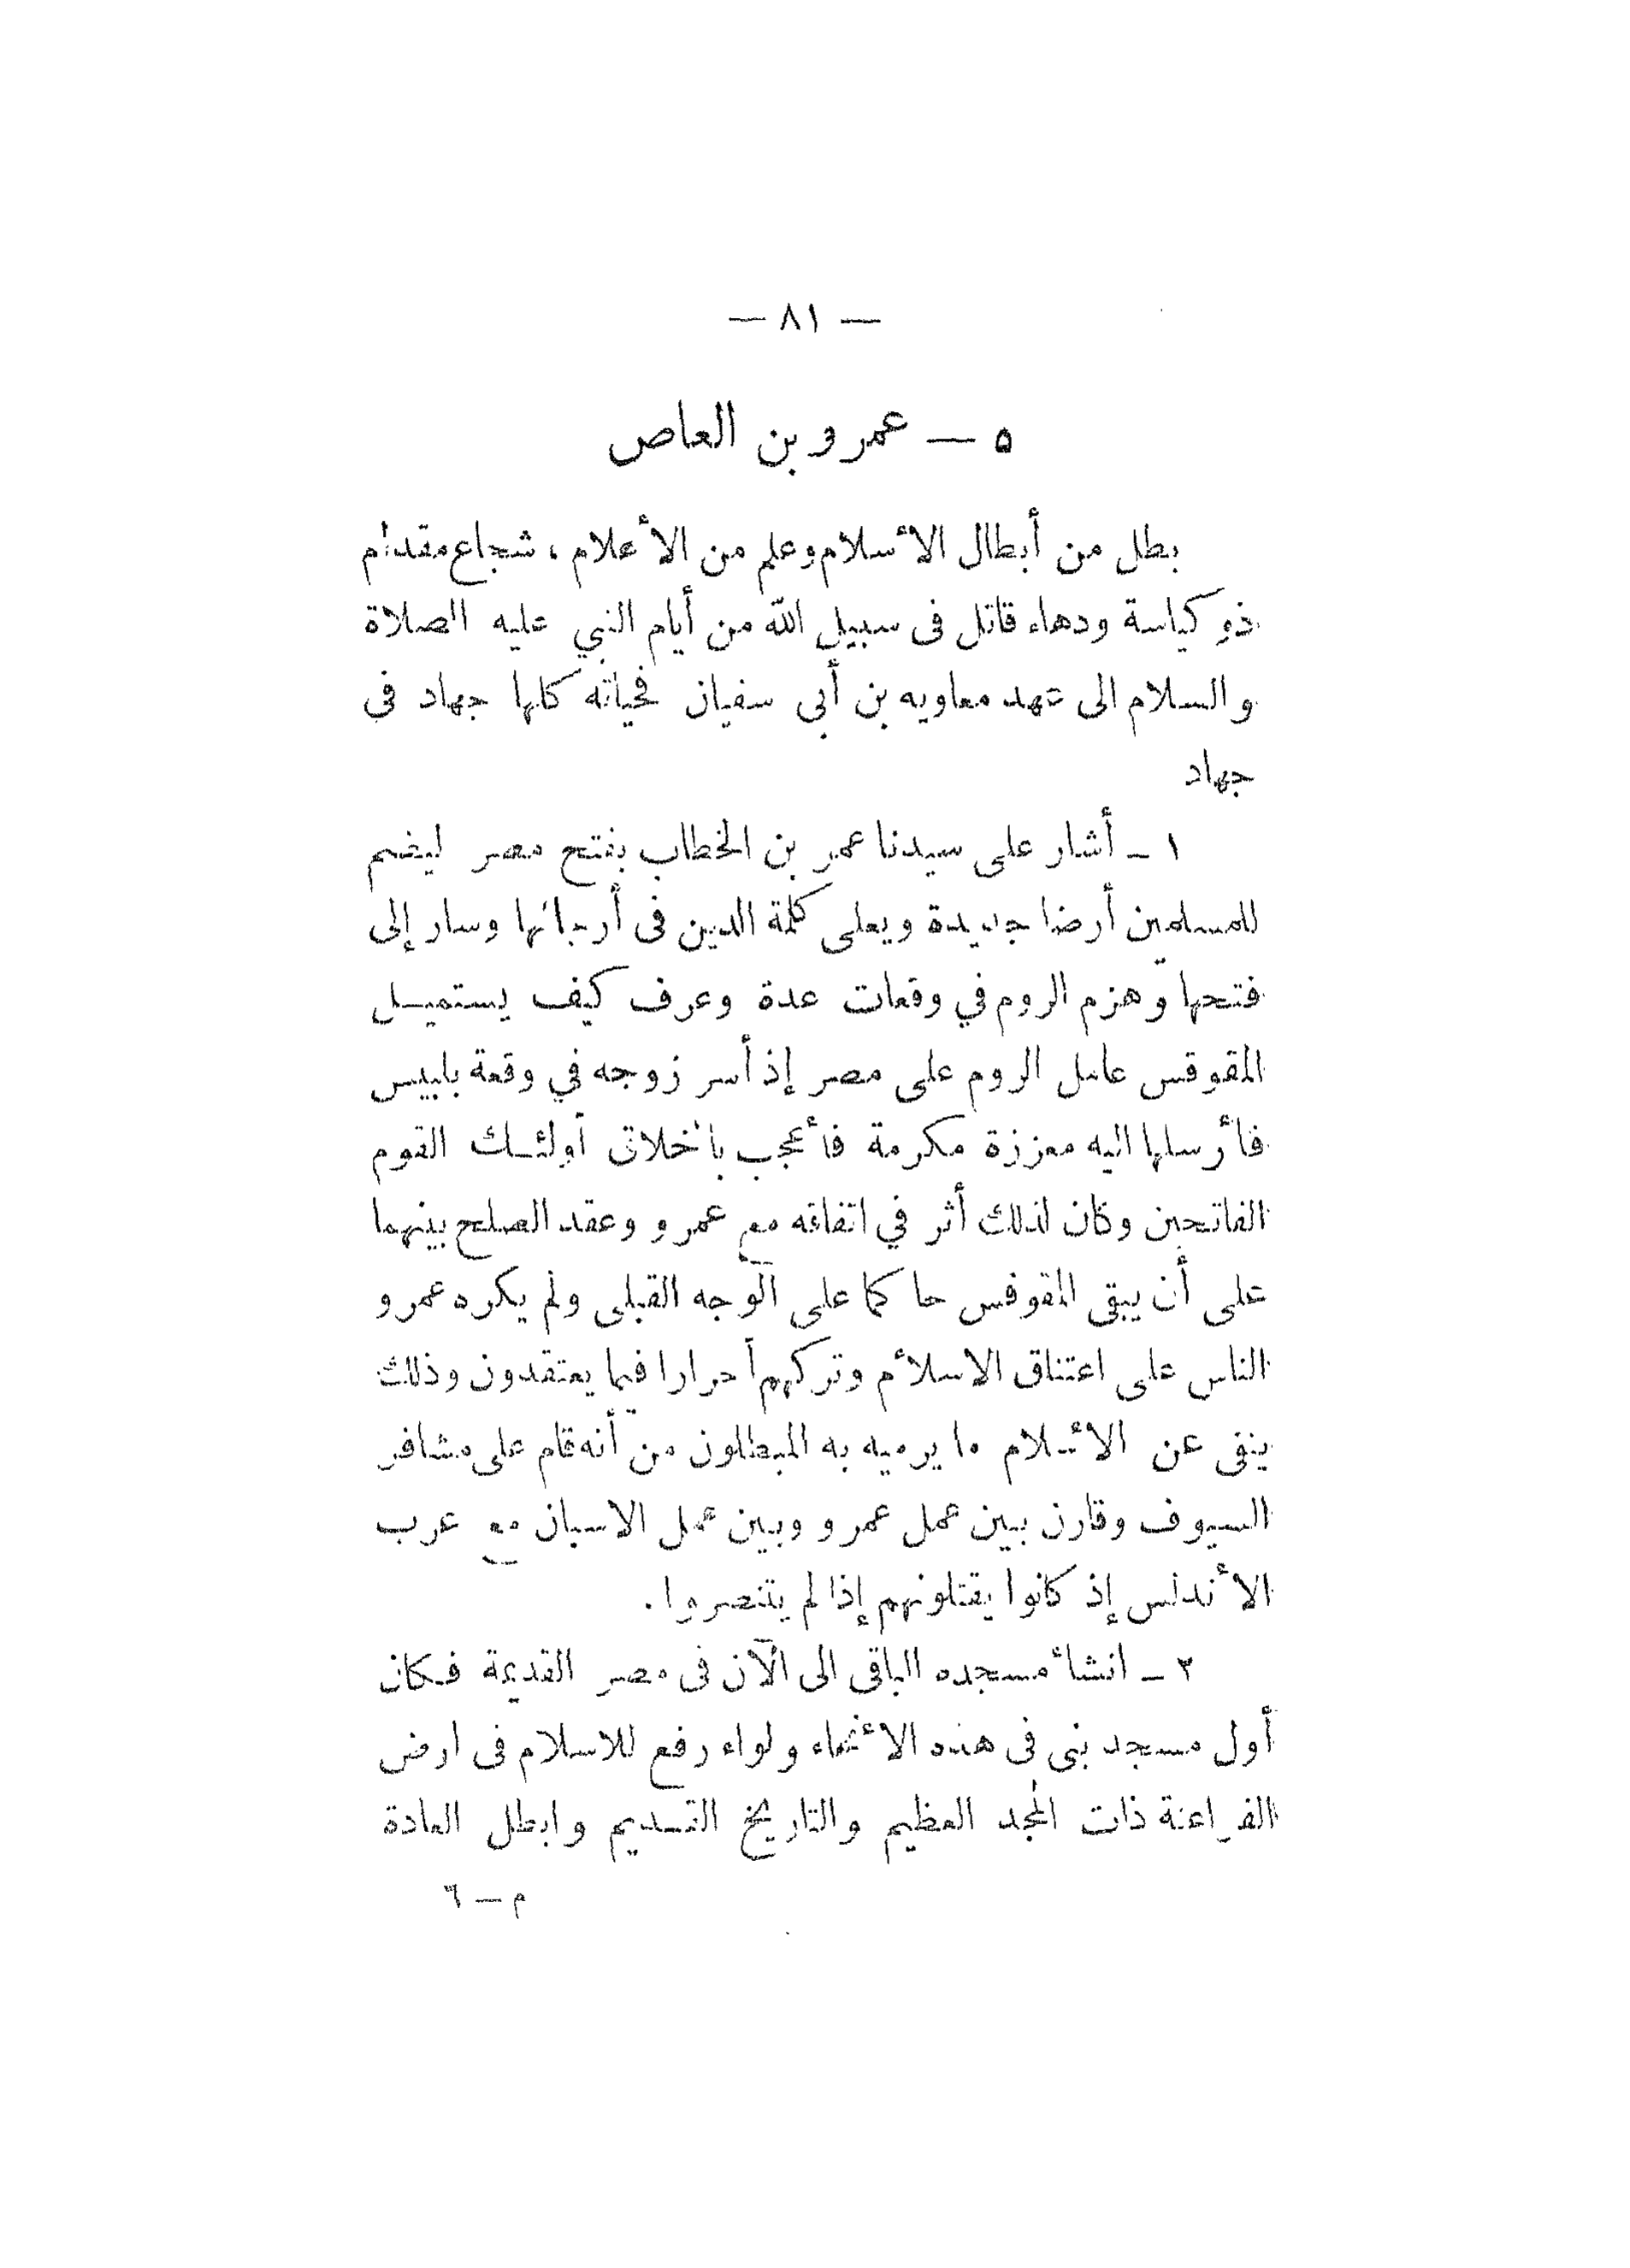 — ٨١ —
٥ — عمرو بن العاص
بطل من أبطال الأسلام وعلم من الأعلام ، شجاع مقدام
ذو كياسة ودهاء قاتل فى سبيل الله من أيام النبي عليه الصلاة
والسلام الى عهد معاويه بن أبى سفيان فحياته كلها جهاد في
جهاد
١ - أشار على سيدنا عمر بن الخطاب بفتح مصر ليضم
للمسلمين أرضا جديدة ويعلى كلمة الدين فى أرجائها وسار إلى
فتحها وهزم الروم في وقعات عدة وعرف كيف يستميل
المقوقس عامل الروم على مصر إذ أسر زوجه في وقعة بلبيس
فأرسلها اليه معززة مكرمة فأعجب بأخلاق أولئك القوم
الفاتحين وكان لذلك أثر في اتفاقه مع عمرو وعقد الصلح بينهما
على أن يبقى المقوقس حاكما على الوجه القبلى ولم يكره عمرو
الناس على اعتناق الاسلام وتركهم أحرارا فيما يعتقدون وذلك
ينفى عن الأسلام ما يرميه به المبطلون من أنه قام على مشافر
السيوف وقارن بين عمل عمرو وبين عمل الاسبان مع عرب
الأندلس إذ كانوا يقتلونهم إذا لم يتنصروا .
٢ - انشأ مسجده الباقى الى الآن فى مصر القديمة فكان
أول مسجد بنى فى هذه الأنحاء ولواء رفع للاسلام فى ارض
الفراعنة ذات المجد العظيم والتاريخ القديم وابطل العادة
م — ٦